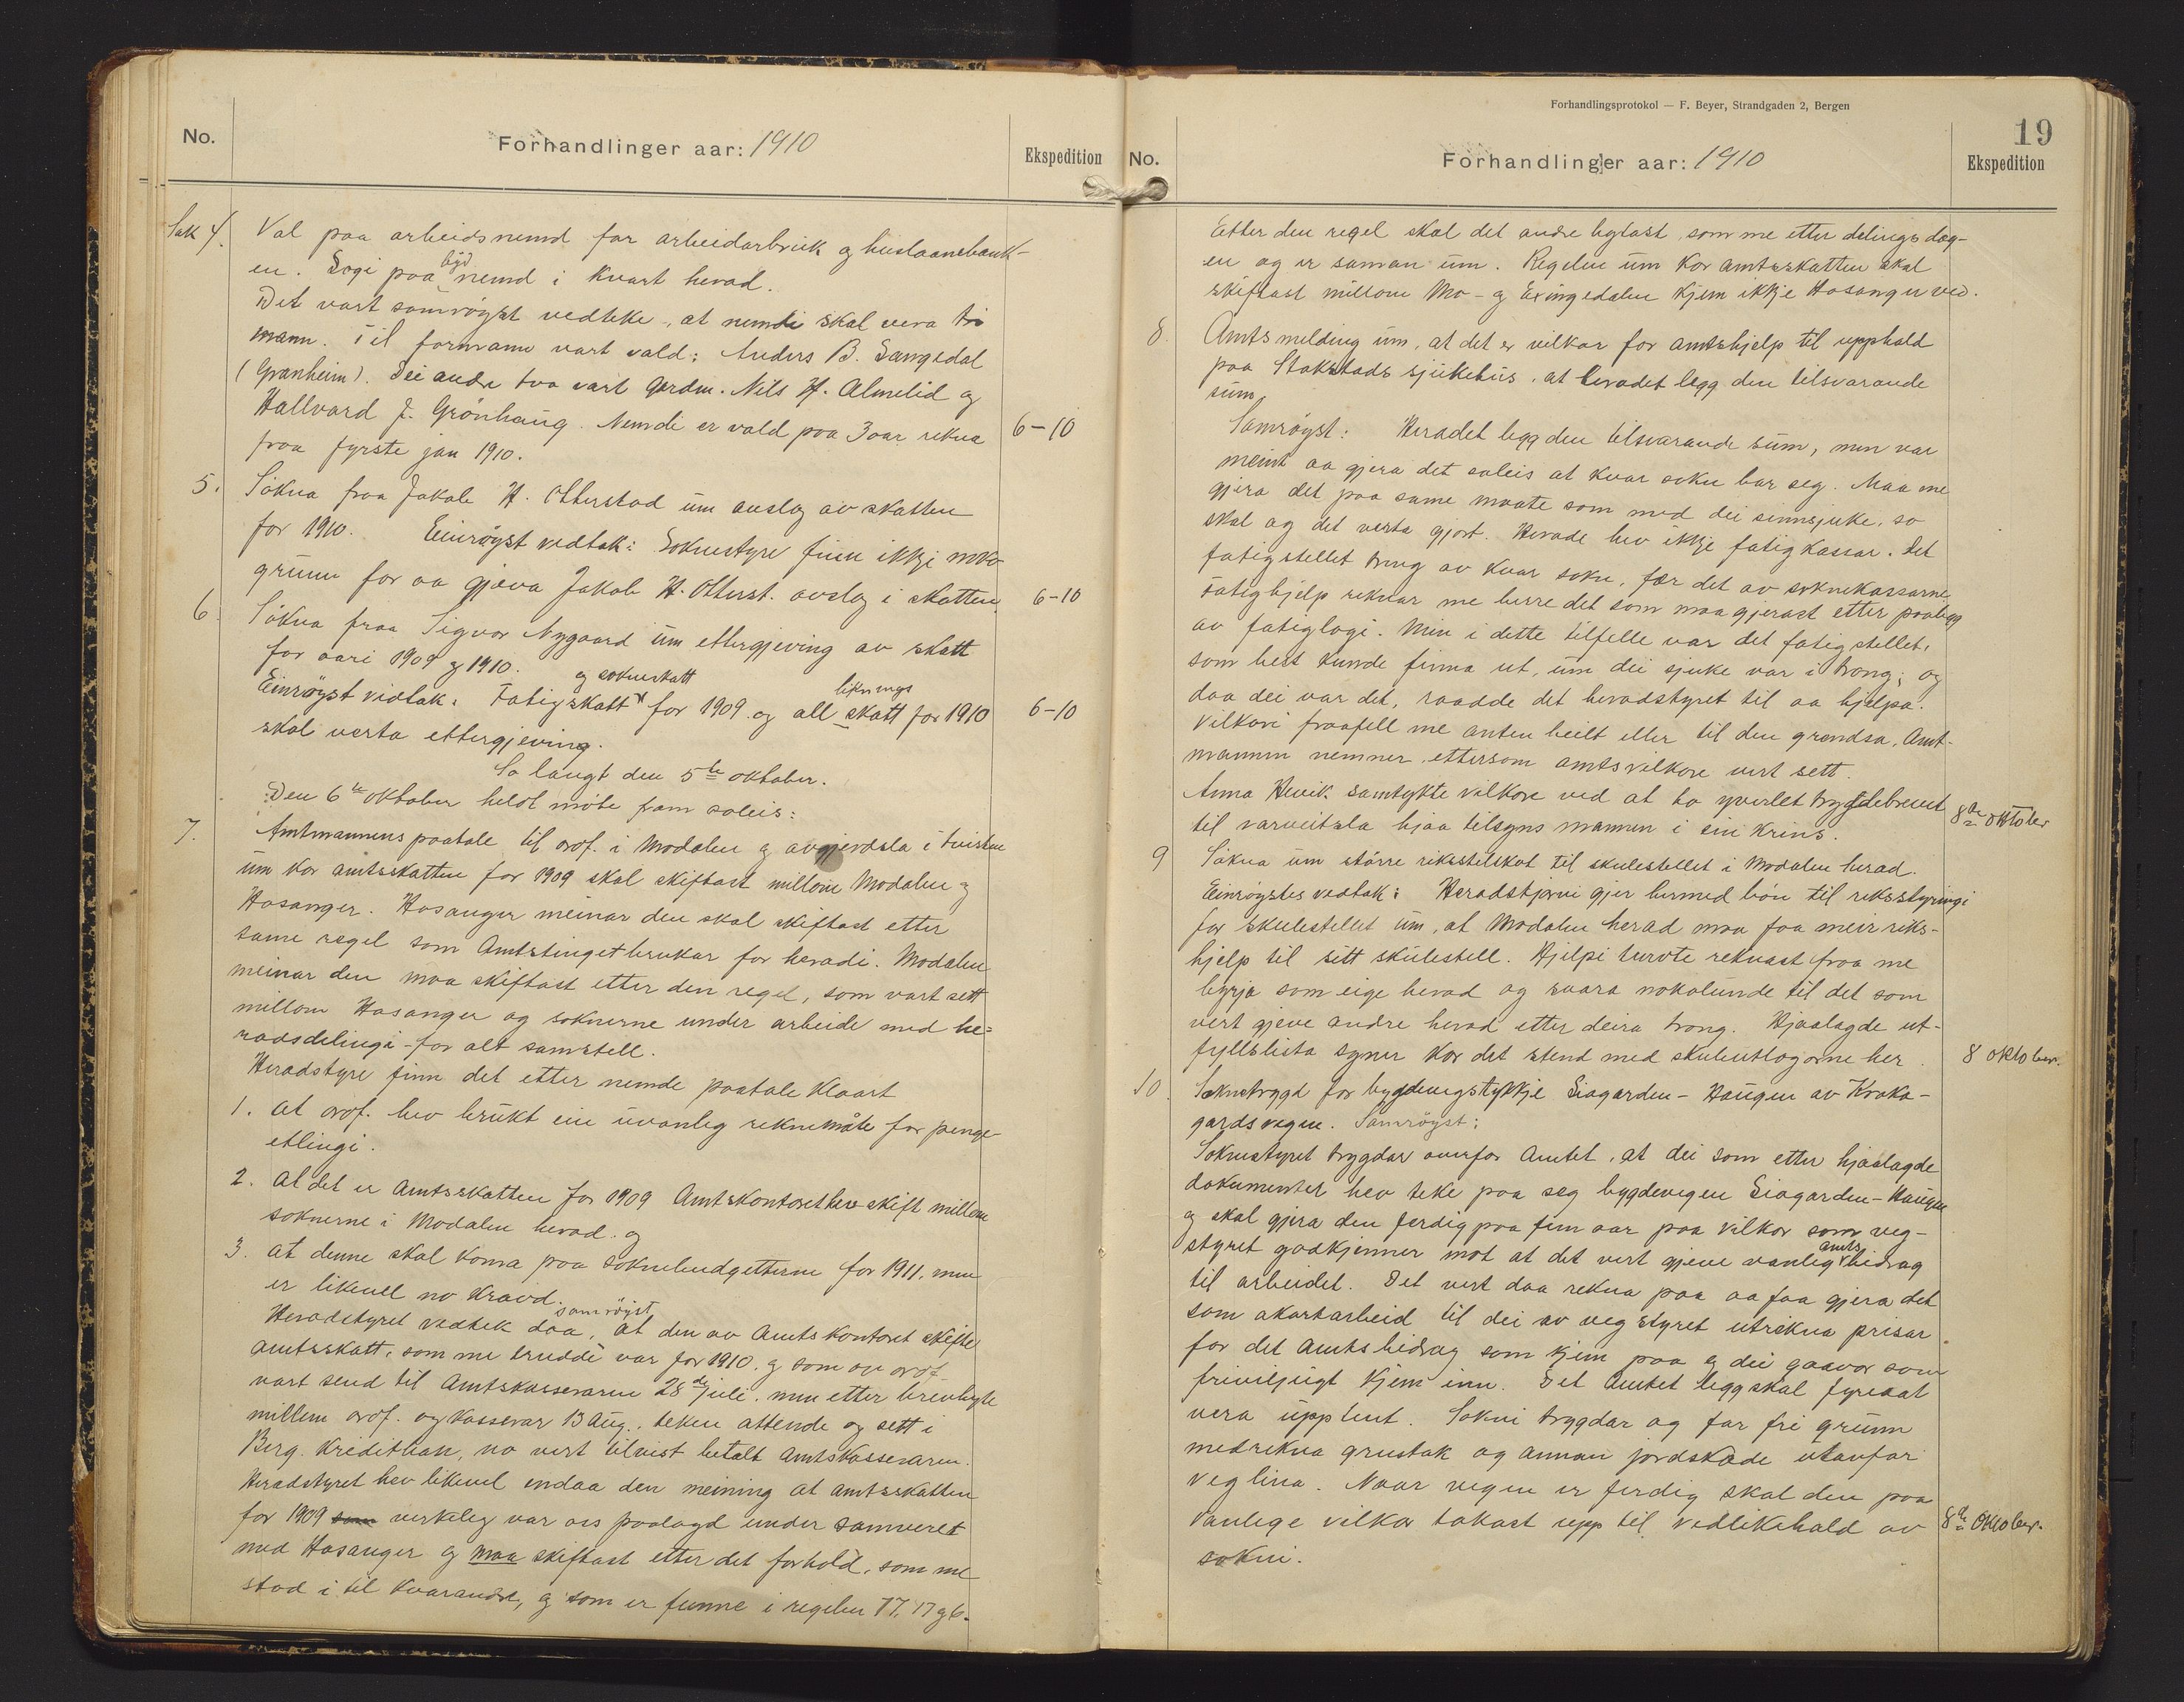 No.
Forhandlinger aar: 1910
Ekspedition
Sak 4. Val paa arbeidsnemnd for arbeidarbruk og huslaanebank-
en. Logi paa byd nemd i kvart herad.
Det vart samrøyst vedteke, at nemdi skal vera tri
mann. Til formann vart vald: Anders B. Langedal
(Granheim). Dei andre tvo vart Gardm. Nils H. Almelid og
Hallvard J. Grönhaug. Nemdi er vald paa 3 aar rekna
fraa fyrste jan 1910.
6-10
5. Sökna fraa Jakob H. Otterstad um avslag av skatten
for 1910. Einröyst vedtak: Soknestyre finn ikkje noko
grunn for aa gjeva Jakob H. Otterst. avslag i skatten.
6-10
6. Sökna fraa Sigvor Nygaard um ettergjeving av skatt
for aari 1909 og 1910.
Einröyst vidtak: Fatigskatt og sokneskatt for 1909 og all liknings skatt for 1910
skal verta ettergjeving.
6-10
So langt den 5te oktober.
Den 6te oktober heldt möte fram soleis:
7. Amtmannens paatale til ordf. i Modalen og avgjerdsla i tvisten
um kor amtsskatten for 1909 skal skiftast millom Modalen og
Hosanger. Hosanger meinar den skal skiftast etter
same regel som Amtstinget brukar for heradi. Modalen
meinar den maa skiftast etter den regel, som vart sett
millom Hosanger og soknerne under arbeide med he-
radsdelingi - for alt samstell.
Heradstyre finn det etter nemde paatale klaart
1. at ordf. hev brukt ein uvanleg reknemåte for penge
etlingi.
2. At det er Amtsskatten for 1909 Amtskontoret hev skift millom
soknerne i Modalen herad. og
3. at denne skal koma paa soknebudgetterne for 1911. men
er likevel no kravd.
Heradstyret vedtek daa, samröyst at den av Amtskontoret skifte
amtsskatt, som me trudde var for 1910. og som av ordf
vart send til Amtskasseraren 28de juli. men etter brevbyte
millem ordf. og kasserar 13 Aug. teken attende og sett i
Berg. Kreditbank, no vert tilvist betalt Amtskasseraren.
Heradstyret hev likevel endaa den meining at amtsskatten
for 1909 som verkeleg var oss paalagd under samveret
med Hosanger og maa skiftast etter det forhold, som me
stod i til kvarandre, og som er funne i regelen 77, 17 og 6.
Forhandlingsprotokol — F. Beyer, Strandgaden 2, Bergen
19
No.
Forhandlinger aar: 1910
Ekspedition
Etter den regel skal det andre bytast som me etter delings dag-
en og er saman um. Regelen um kor amtsskatten skal
skiftast millom Mo- og Exingedalen kjem ikkje Hosanger ved.
8. Amtsmelding um, at det er vilkor for amtshjelp til upphald
paa Stokstads sjukehus, at heradet legg den tilsvarande
sum.
Samröyst: Heradet legg den tilsvarande sum, men var
meint aa gjera det soleis at kvar sokn bar seg. Maa me
gjera det paa same maate som med dei sinnsjuke, so
skal og det verta gjort. Herade hev ikkje fatigkassar. Det
fatigstellet trong av kvar sokn, fær det av soknekassarne.
Fatighjelp reknar me berre det som maa gjerast etter paalegg
av fatiglogi. Men i dette tilfelle var det fatigstellet,
som best kunde finna ut, um dei sjuke var i trong; og
daa dei var det, raadde det heradstyret til aa hjelpa.
Vilkori fraafell me anten heilt eller til den grendsa, Amt-
mannen nemner, ettersom amtsvilkore vert sett.
Anna Hevik samtykte vilkore ved at ho yverlet trygdebrevet
til varveitsla hjaa tilsynsmannen i sin krins.
8de oktober
9 Sökna um större rikstilskot til skulestellet i Modalen herad.
Einröystes vedtak: Heradstyrni gjer hermed bön til riksstyringi
for skulestellet um, at Modalen herad maa faa meir riks-
hjelp til sitt skulestell. Hjelpi turvte reknast fraa me
byrja som eige herad og svara nokolunde til det som
vert gjeve andre herad etter deira trong. Hjaalagde ut-
fyllslista syner kor det stend med skuleutlogorne her.
8 oktober.
10. Soknetrygd for bygdevegstykkje Siagarden - Haugen av Kroka-
gardsvegen. Samröyst:
Soknestyret trygdar overfor Amtet, at dei som etter hjaalagde
dokumenter hev teke paa seg bygdevegen Siagarden - Haugen
og skal gjera den ferdig paa fem aar paa vilkor som veg-
styret godkjenner mot at det vert gjeve vanleg amts bidrag
til arbeidet. Det vert daa rekna paa aa faa gjera det
som akortarbeid til dei av vegstyret utrekna prisar
for det Amtsbidrag som kjem paa og dei gaavor som
friviljugt kjem inn. Det Amtet legg skal fyreaat
vera upptent. Sokni trygdar og for fri grunn
medrekna grustak og annan jordskade utanfor
veglina. Naar vegen er ferdig skal den paa
vanlege vilkor takast upp til vedlikehald av
sokni.
8de Oktober.